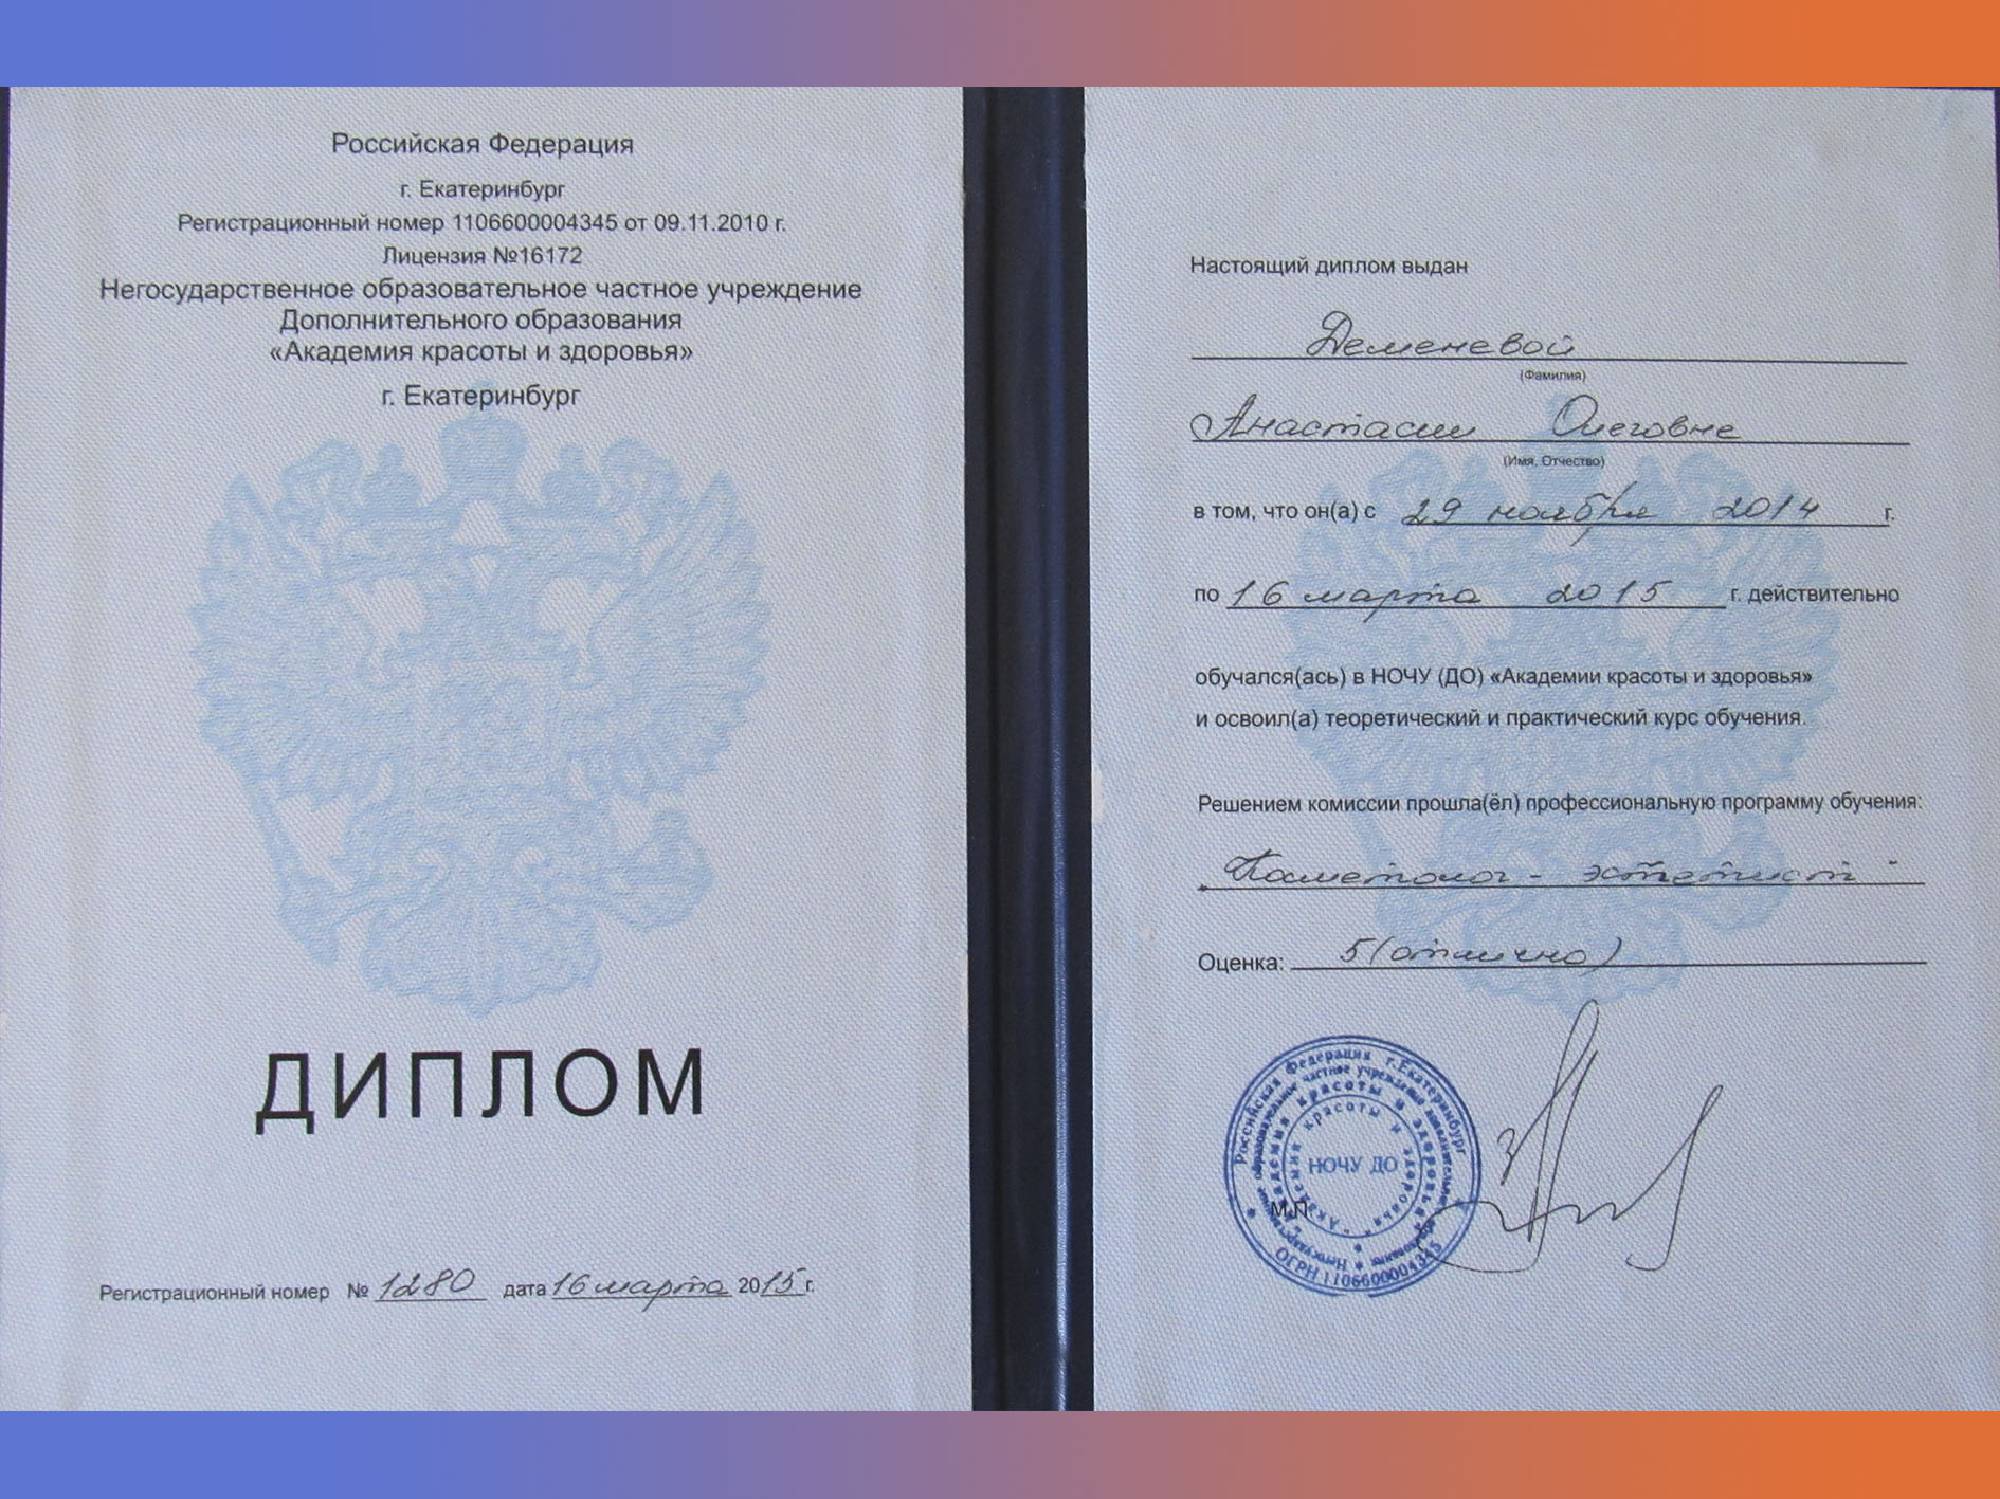 Российская Федерация
г. Екатеринбург
Регистрационный номер 1106600004345 от 09.11.2010 г.
Лицензия №16172
Негосударственное образовательное частное учреждение
Дополнительного образования
«Академия красоты и здоровья»
г. Екатеринбург
ДИПЛОМ
Регистрационный номер № 1280 дата 16 марта 2015 г.
Настоящий диплом выдан
Деменевой
(Фамилия)
Анастасии Олеговне
(Имя, Отчество)
в том, что он(а) с 29 ноября 2014 г.
по 16 марта 2015 г. действительно
обучался(ась) в НОЧУ (ДО) «Академии красоты и здоровья»
и освоил(а) теоретический и практический курс обучения.
Решением комиссии прошла(ёл) профессиональную программу обучения:
"Косметолог - эстетист"
Оценка: 5 (отлично)
Российская Федерация г. Екатеринбург
Негосударственное образовательное частное учреждение дополнительного образования
"Академия красоты и здоровья"
"Академия красоты и здоровья"
НОЧУ ДО
М.П.
ОГРН 1106600004345